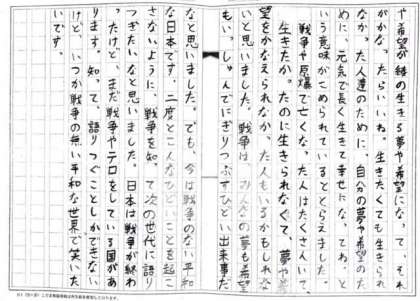 や希望が綾の生きる夢や希望になって、それ
がかなったらいいね。生きたくても生きられ
なかった人達のために、自分の夢や希望のた
めに、元気で長く生きて幸せになってね。と
いう意味がこめられているととらえました。
戦争や原爆で亡くなった人はたくさんいて、
生きたかったのに生きられなくて、夢や希
望をかなえられなかった人もいるかもしれな
いと思いました。戦争は、みんなの夢も希望
もいっしゅんでにぎりつぶすひどい出来事だ
なと思いました。でも、今は戦争のない平和
な日本です。二度とこんなひどいことを起こ
さないように、戦争を知って次の世代に語り
つぎたいなと思いました。日本は戦争が終わ
ったけど、まだ戦争やテロをしている国があ
ります。知って、語りつぐことしかできない
けど、いつか戦争の無い平和な世界で笑いた
いです。